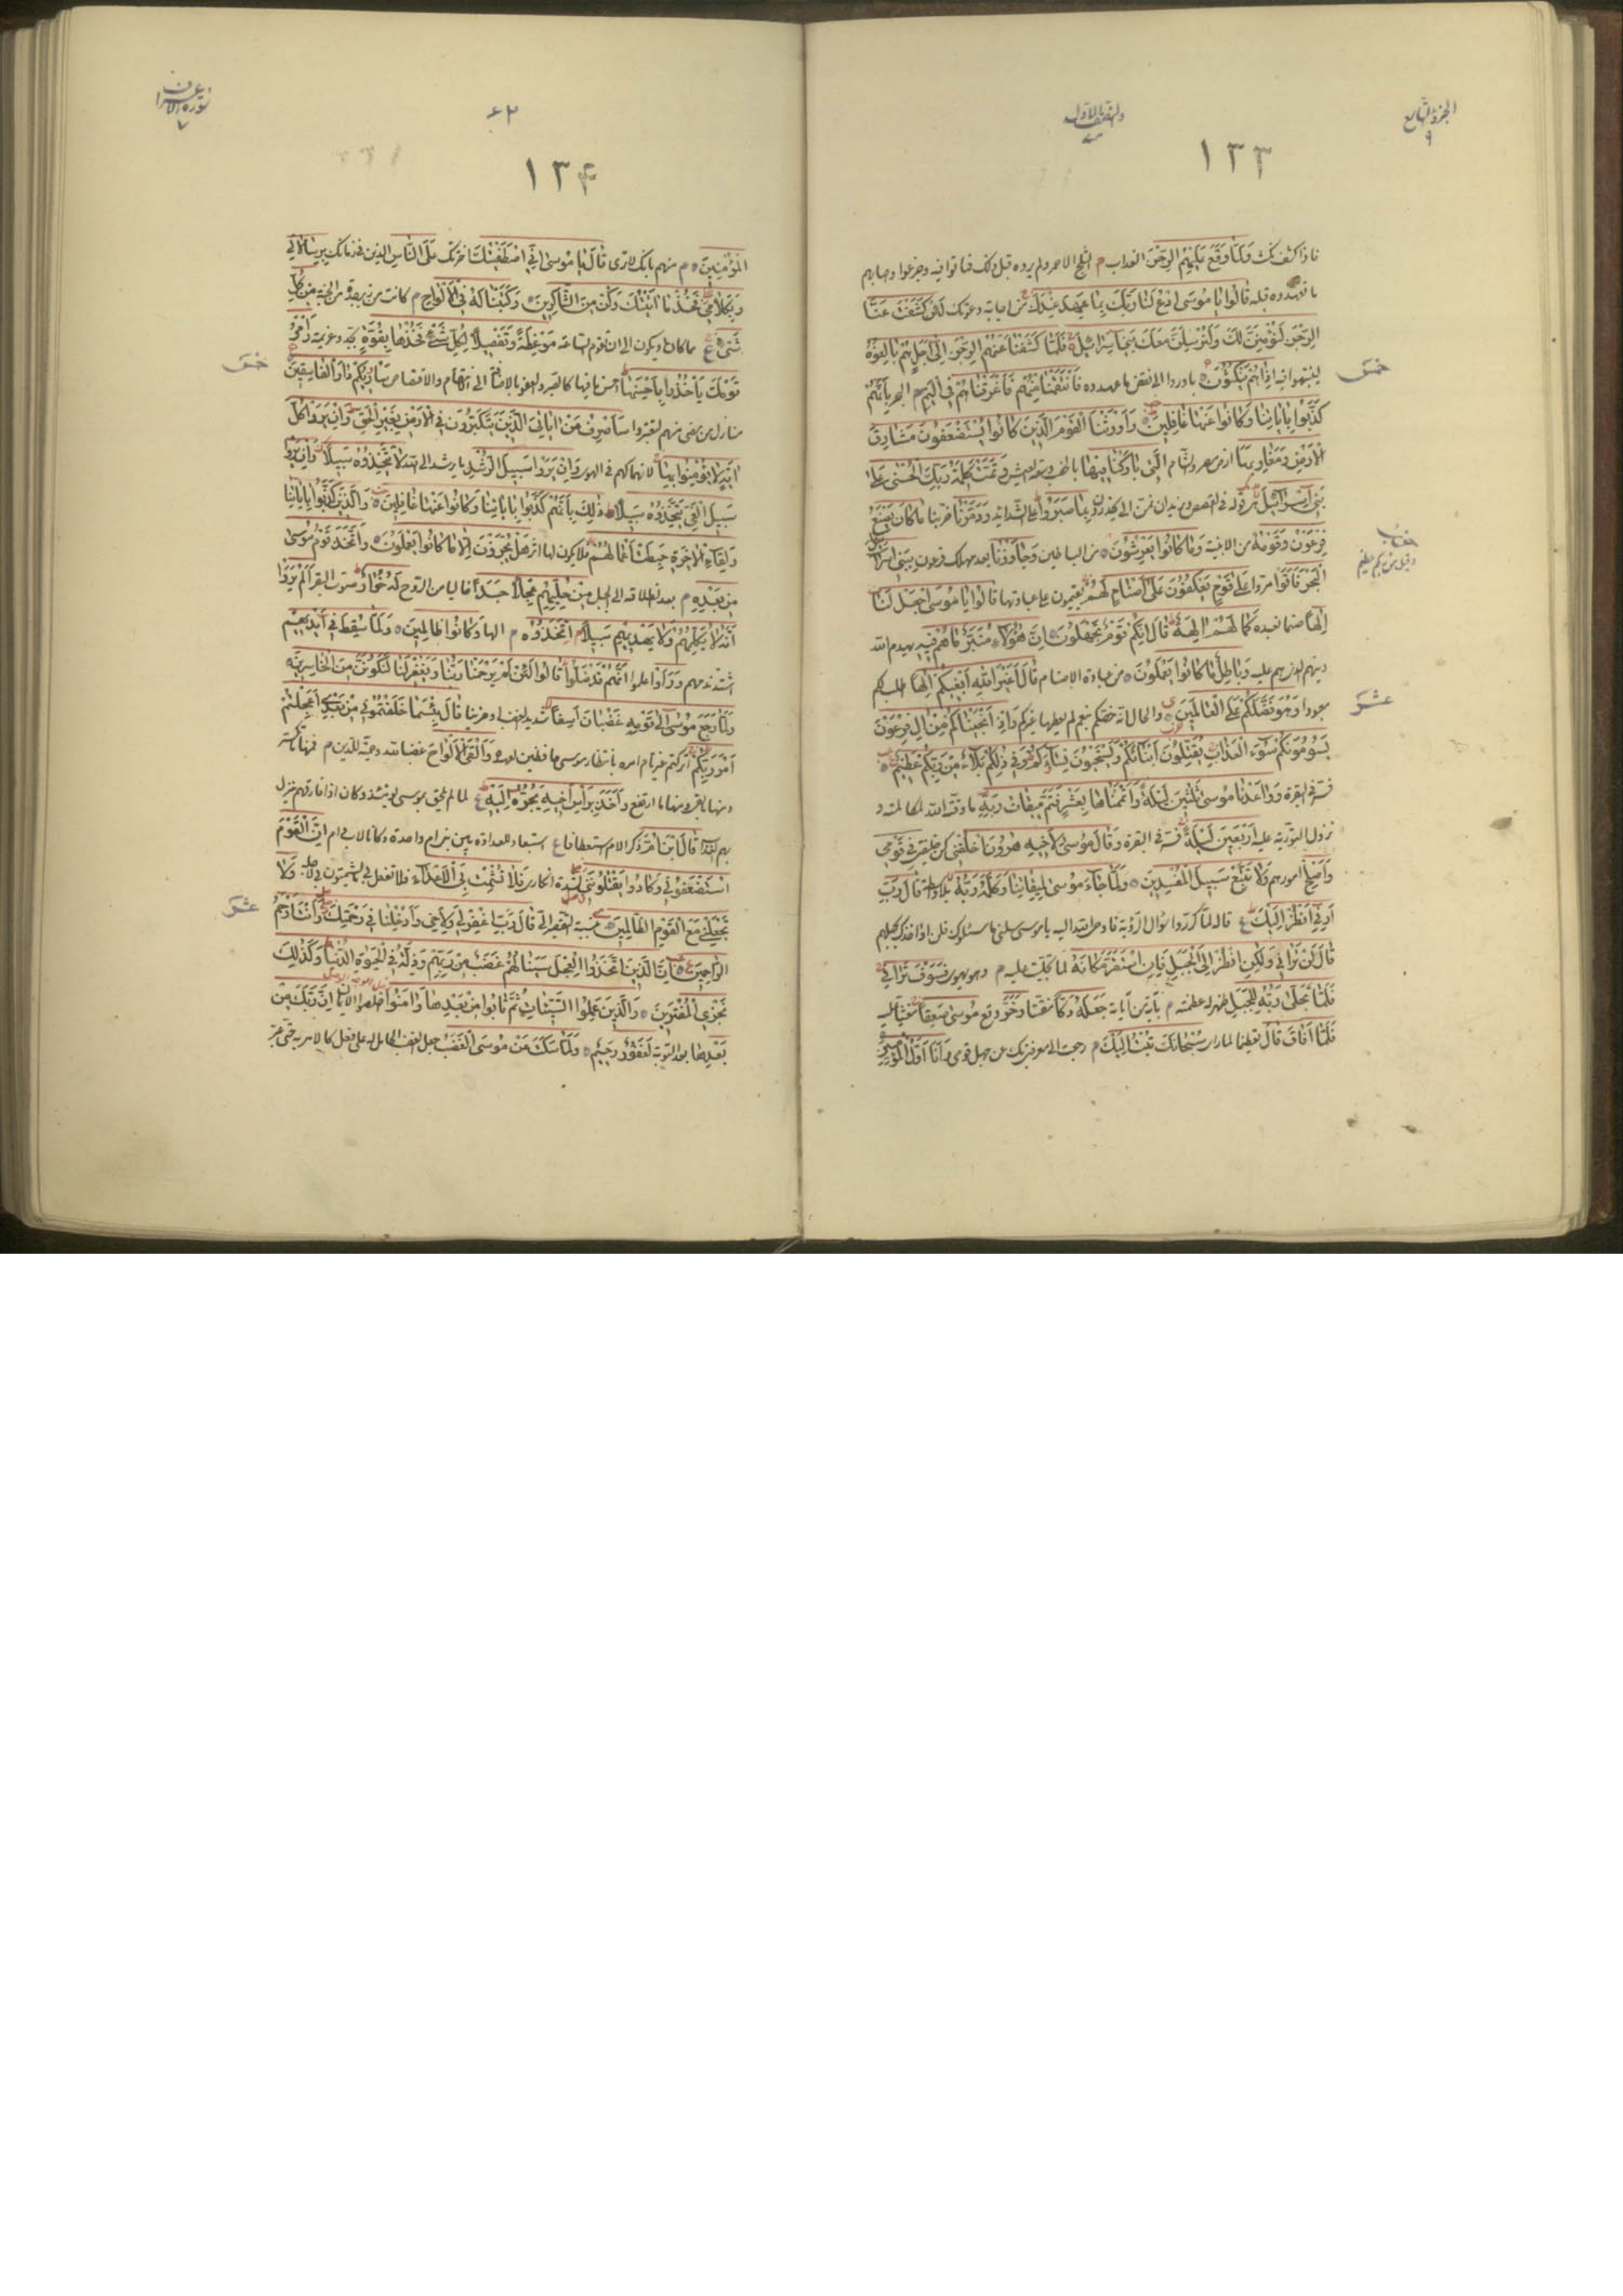 الجزء التاسع
٩
والنصف الاول
١٣٣
وَلَمَّا وَقَعَ عَلَيْهِمُ الرِّجْزُ العذاب م الثلج الاحمر ولم يروه قبل ذلك فماتوا فيه وجزعوا
قَالُوا يَا مُوسَى ادْعُ لَنَا رَبَّكَ بِمَا عَهِدَ عِنْدَكَ من اجابة دعوتك لَئِنْ كَشَفْتَ عَنَّا
الرِّجْزَ لَنُؤْمِنَنَّ لَكَ وَلَنُرْسِلَنَّ مَعَكَ بَنِي إِسْرَائِيلَ فَلَمَّا كَشَفْنَا عَنْهُمُ الرِّجْزَ إِلَى أَجَلٍ هُمْ بَالِغُوهُ
إِذَا هُمْ يَنْكُثُونَ بادروا الى نقض ما عهدوه فَانْتَقَمْنَا مِنْهُمْ فَأَغْرَقْنَاهُمْ فِي الْيَمِّ البحر بِأَنَّهُمْ
خمس
كَذَّبُوا بِآيَاتِنَا وَكَانُوا عَنْهَا غَافِلِينَ وَأَوْرَثْنَا الْقَوْمَ الَّذِينَ كَانُوا يُسْتَضْعَفُونَ مَشَارِقَ
الْأَرْضِ وَمَغَارِبَهَا ارض مصر والشام الَّتِي بَارَكْنَا فِيهَا بالخصب وسعة العيش وَتَمَّتْ كَلِمَتُ رَبِّكَ الْحُسْنَى عَلَى
بَنِي إِسْرَائِيلَ بِمَا صَبَرُوا على الشدائد وَدَمَّرْنَا خربنا مَا كَانَ يَصْنَعُ
فِرْعَوْنُ وَقَوْمُهُ من الابنية وَمَا كَانُوا يَعْرِشُونَ من البساتين وَجَاوَزْنَا بعد مهلك فرعون بِبَنِي إِسْرَائِيلَ
الْبَحْرَ فَأَتَوْا مروا عَلَى قَوْمٍ يَعْكُفُونَ عَلَى أَصْنَامٍ لَهُمْ يقيمون على عبادتها قَالُوا يَا مُوسَى اجْعَلْ لَنَا
إِلَهًا صنما نعبده كَمَا لَهُمْ آلِهَةٌ قَالَ إِنَّكُمْ قَوْمٌ تَجْهَلُونَ إِنَّ هَؤُلَاءِ مُتَبَّرٌ مَا هُمْ فِيهِ يهدم الله
دينهم الذي هم عليه وَبَاطِلٌ مَا كَانُوا يَعْمَلُونَ من عبادة الاصنام قَالَ أَغَيْرَ اللَّهِ أَبْغِيكُمْ إِلَهًا اطلب لكم
معبودا وَهُوَ فَضَّلَكُمْ عَلَى الْعَالَمِينَ والحال انه خصكم بنعم لم يعطها غيركم وَإِذْ أَنْجَيْنَاكُمْ مِنْ آلِ فِرْعَوْنَ
عشر
يَسُومُونَكُمْ سُوءَ الْعَذَابِ يُقَتِّلُونَ أَبْنَاءَكُمْ وَيَسْتَحْيُونَ نِسَاءَكُمْ وَفِي ذَلِكُمْ بَلَاءٌ مِنْ رَبِّكُمْ عَظِيمٌ
فسر في البقرة وَوَاعَدْنَا مُوسَى ثَلَاثِينَ لَيْلَةً وَأَتْمَمْنَاهَا بِعَشْرٍ فَتَمَّ مِيقَاتُ رَبِّهِ
نزول التورية عليه أَرْبَعِينَ لَيْلَةً فسر في البقرة وَقَالَ مُوسَى لِأَخِيهِ هَارُونَ اخْلُفْنِي كن خليفتي فِي قَوْمِي
وَأَصْلِحْ امورهم وَلَا تَتَّبِعْ سَبِيلَ الْمُفْسِدِينَ وَلَمَّا جَاءَ مُوسَى لِمِيقَاتِنَا وَكَلَّمَهُ رَبُّهُ بلا واسطة قَالَ رَبِّ
أَرِنِي أَنْظُرْ إِلَيْكَ قاله لما كرروا سؤال الرؤية فاوحى الله اليه يا موسى سلني ما سئلوك فلن اؤاخذك بجهلهم
قَالَ لَنْ تَرَانِي وَلَكِنِ انْظُرْ إِلَى الْجَبَلِ فَإِنِ اسْتَقَرَّ مَكَانَهُ لما تجليت عليه فَسَوْفَ تَرَانِي
فَلَمَّا تَجَلَّى رَبُّهُ لِلْجَبَلِ ظهر له عظمته م بآية من آياته جَعَلَهُ دَكًّا مفتتا وَخَرَّ وقع مُوسَى صَعِقًا مغشيا عليه
فَلَمَّا أَفَاقَ قَالَ تعظيما لما راى سُبْحَانَكَ تُبْتُ إِلَيْكَ م رجعت الى معرفتي بك عن جهل قومي وَأَنَا أَوَّلُ الْمُؤْمِنِينَ
سورة الاعراف
٧
١٣۴
الْمُؤْمِنِينَ م منهم بانك لا ترى قَالَ يَا مُوسَى إِنِّي اصْطَفَيْتُكَ اخترتك عَلَى النَّاسِ الذين في زمانك بِرِسَالَاتِي
وَبِكَلَامِي فَخُذْ مَا آتَيْتُكَ وَكُنْ مِنَ الشَّاكِرِينَ وَكَتَبْنَا لَهُ فِي الْأَلْوَاحِ م كانت من زبرجدة من الجنة مِنْ كُلِّ
شَيْءٍ مما كان او يكون الى ان تقوم الساعة مَوْعِظَةً وَتَفْصِيلًا لِكُلِّ شَيْءٍ فَخُذْهَا بِقُوَّةٍ بجد وعزيمة وَأْمُرْ
قَوْمَكَ يَأْخُذُوا بِأَحْسَنِهَا احسن ما فيها كالصبر والعفو بالاضافة الى الانتقام والاقتصاص سَأُرِيكُمْ دَارَ الْفَاسِقِينَ
خمس
منازل من مضى منهم لتعتبروا سَأَصْرِفُ عَنْ آيَاتِيَ الَّذِينَ يَتَكَبَّرُونَ فِي الْأَرْضِ بِغَيْرِ الْحَقِّ وَإِنْ يَرَوْا كُلَّ
آيَةٍ لَا يُؤْمِنُوا بِهَا لانهماكهم في الهوى وَإِنْ يَرَوْا سَبِيلَ الرُّشْدِ لَا يَتَّخِذُوهُ سَبِيلًا وَإِنْ يَرَوْا
سَبِيلَ الْغَيِّ يَتَّخِذُوهُ سَبِيلًا ذَلِكَ بِأَنَّهُمْ كَذَّبُوا بِآيَاتِنَا وَكَانُوا عَنْهَا غَافِلِينَ وَالَّذِينَ كَذَّبُوا بِآيَاتِنَا
وَلِقَاءِ الْآخِرَةِ حَبِطَتْ أَعْمَالُهُمْ فلا يكون لها اثر هَلْ يُجْزَوْنَ إِلَّا مَا كَانُوا يَعْمَلُونَ وَاتَّخَذَ قَوْمُ مُوسَى
مِنْ بَعْدِهِ م بعد انطلاقه الى الجبل مِنْ حُلِيِّهِمْ عِجْلًا جَسَدًا خاليا من الروح لَهُ خُوَارٌ صوت البقر أَلَمْ يَرَوْا
أَنَّهُ لَا يُكَلِّمُهُمْ وَلَا يَهْدِيهِمْ سَبِيلًا اتَّخَذُوهُ م الها وَكَانُوا ظَالِمِينَ وَلَمَّا سُقِطَ فِي أَيْدِيهِمْ
اشتد ندمهم وَرَأَوْا علموا أَنَّهُمْ قَدْ ضَلُّوا قَالُوا لَئِنْ لَمْ يَرْحَمْنَا رَبُّنَا وَيَغْفِرْ لَنَا لَنَكُونَنَّ مِنَ الْخَاسِرِينَ
وَلَمَّا رَجَعَ مُوسَى إِلَى قَوْمِهِ غَضْبَانَ أَسِفًا شديد الغضب او حزينا قَالَ بِئْسَمَا خَلَفْتُمُونِي مِنْ بَعْدِي أَعَجِلْتُمْ
أَمْرَ رَبِّكُمْ اتركتم غير تام امره بانتظار موسى حافظين لعهده وَأَلْقَى الْأَلْوَاحَ غضبا لله وحمية للدين م فمنها ما تكسر
ومنها ما بقي ومنها ما ارتفع وَأَخَذَ بِرَأْسِ أَخِيهِ يَجُرُّهُ إِلَيْهِ لما لم يلحق بموسى وكان اذا فارقهم ينزل
بهم العذاب قَالَ ابْنَ أُمَّ ذكر الام استعطافا إِنَّ الْقَوْمَ
اسْتَضْعَفُونِي وَكَادُوا يَقْتُلُونَنِي لشدة انكاري فَلَا تُشْمِتْ بِيَ الْأَعْدَاءَ فلا تفعل بي ما يشمتون بي لاجله وَلَا
تَجْعَلْنِي مَعَ الْقَوْمِ الظَّالِمِينَ قَالَ رَبِّ اغْفِرْ لِي وَلِأَخِي وَأَدْخِلْنَا فِي رَحْمَتِكَ وَأَنْتَ أَرْحَمُ
عشر
الرَّاحِمِينَ إِنَّ الَّذِينَ اتَّخَذُوا الْعِجْلَ سَيَنَالُهُمْ غَضَبٌ مِنْ رَبِّهِمْ وَذِلَّةٌ فِي الْحَيَوةِ الدُّنْيَا وَكَذَلِكَ
نَجْزِي الْمُفْتَرِينَ وَالَّذِينَ عَمِلُوا السَّيِّئَاتِ ثُمَّ تَابُوا مِنْ بَعْدِهَا وَآمَنُوا إِنَّ رَبَّكَ مِنْ
بَعْدِهَا بعد التوبة لَغَفُورٌ رَحِيمٌ وَلَمَّا سَكَتَ عَنْ مُوسَى الْغَضَبُ جعل الغضب الحامل له على ما فعل كالآمر به